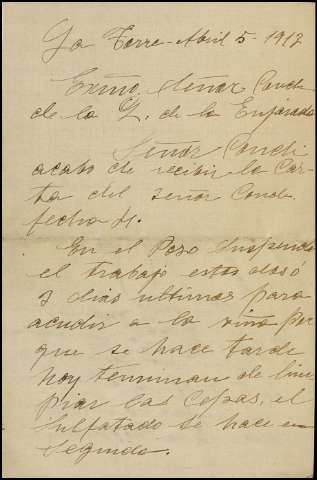 La Torre - Abril 5 - 1912
Exmo. Señor Conde
de la V. de la Enjarada
Señor Conde:
acabo de recibir la Car-
ta del Señor Conde
fecha 4.
En el Pozo suspendo
el trabajo estos dos ó
3 dias ultimos para
acudir a la viña por
que se hace tarde
hoy terminan de lim-
piar las Cepas, el
sulfatado se hace en
seguida.